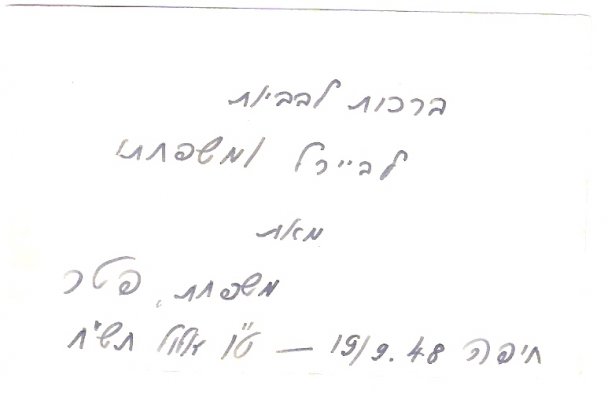 ברכות לבביות
לביירל ומשפחתו
מאת
משפחת פטר
חיפה 19/9.48 — ט"ו אלול תש"ח